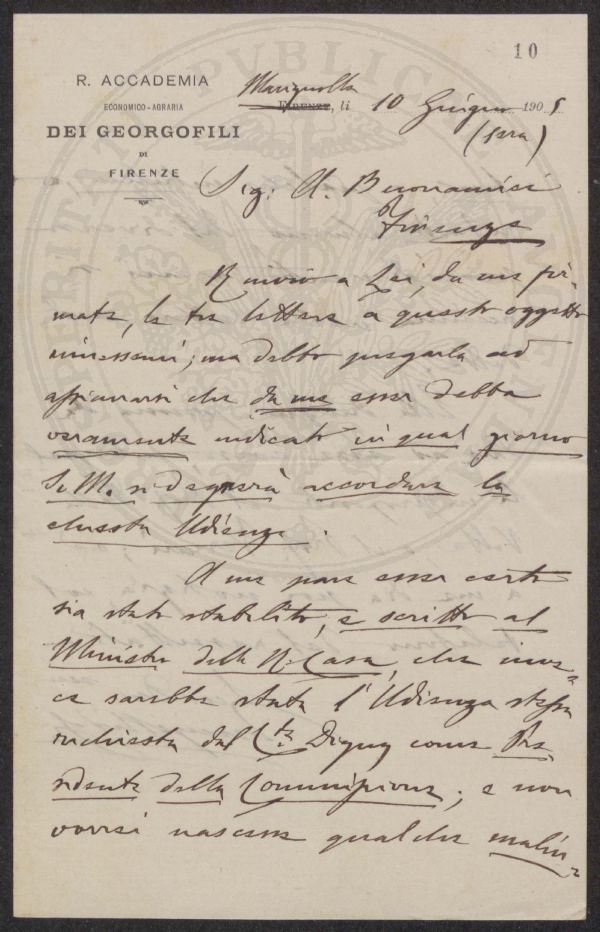 10
R. ACCADEMIA
ECONOMICO-AGRARIA
DEI GEORGOFILI
DI
FIRENZE
Marignolla
FIRENZE, li 10 Giugno 1905
(sera)
Sig: A. Buonamici
Firenze
Rinvio a Lei, da me fir-
mate, le tre lettere a questo oggetto
; ma debbo pregarla ad
che da me esser debba
veramente indicato in qual giorno
S. M. si degnerà accordare la
chiesta Udienza.
A me pare esser certo
sia stato stabilito, e scritto al
Ministro della R. Casa, che inve-
ce sarebbe stata l'Udienza stessa
richiesta dal Cte Digny come Pre-
sidente della Commissione; e non
vorrei nascesse qualche malin-